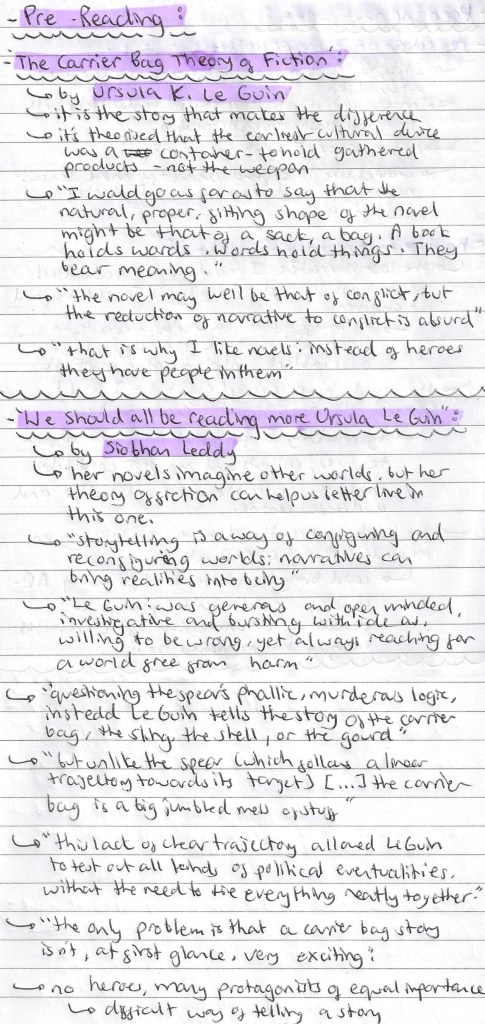 - Pre-Reading:
- "The Carrier Bag Theory of Fiction":
↳ by Ursula K. Le Guin
↳ it is the story that makes the difference
↳ it's theorised that the earliest cultural device
was a container - to hold gathered
products - not the weapon
↳ "I would go as far as to say that the
natural, proper, fitting shape of the novel
might be that of a sack, a bag. A book
holds words. Words hold things. They
bear meaning."
↳ "the novel may well be that of conflict, but
the reduction of narrative to conflict is absurd"
↳ "that is why I like novels: instead of heroes
they have people in them"
- "We should all be reading more Ursula Le Guin":
↳ by Siobhan Leddy
↳ her novels imagine other worlds, but her
theory of fiction can help us better live in
this one.
↳ "storytelling is a way of configuring and
reconfiguring worlds; narratives can
bring realities into being"
↳ "Le Guin: was generous and open minded,
investigative and bursting with ideas,
willing to be wrong, yet always reaching for
a world free from harm"
↳ "questioning the spear's phallic, murderous logic,
instead Le Guin tells the story of the carrier
bag, the sling, the shell, or the gourd"
↳ "but unlike the spear (which follows a linear
trajectory towards its target) [...] the carrier
bag is a big jumbled mess of stuff"
↳ "this lack of clear trajectory allowed Le Guin
to test out all kinds of political eventualities,
without the need to tie everything neatly together."
↳ "the only problem is that a carrier bag story
isn't, at first glance, very exciting".
↳ no heroes, many protagonists of equal importance
↳ difficult way of telling a story